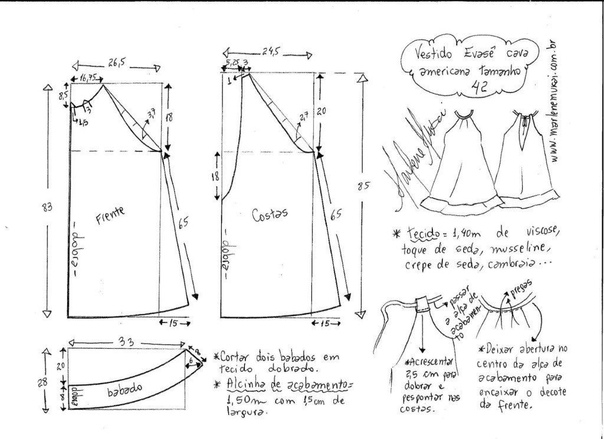 Vestido Evasê cava
americana tamanho
42
www.marlenemurai.com.br
Marlene Mukai
26,5
16,75
8,5
1,5
3
3,7
18
83
Frente
dobra
65
15
24,5
5,25
3
1
2,7
20
18
85
Costas
dobra
65
15
* tecido = 1,40m de viscose,
toque de seda, musseline,
crepe de seda, cambraia...
33
20
28
8
dobra
babado
6
*Cortar dois babados em
tecido dobrado.
* Alcinha de acabamento =
1,50m com 1,5cm de
largura.
passar
a alça de
acabamen-
to
*Acrescentar
2,5 cm para
dobrar e
pespontar nas
costas.
pregas
*Deixar abertura no
centro da alça de
acabamento para
encaixar o decote
da frente.